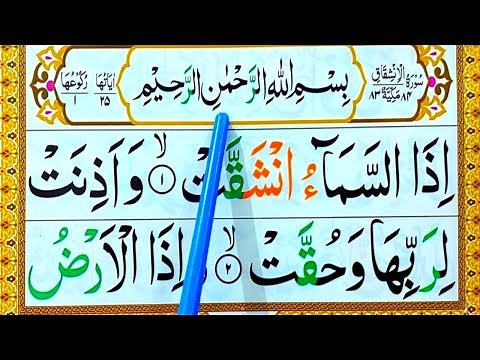 سُوْرَةُ الْاِنْشِقَاقِ
٨٤ مَكِّيَّةٌ ٨٣
بِسْمِ اللهِ الرَّحْمٰنِ الرَّحِيْمِ
اٰيَاتُهَا ٢٥
رُكُوْعُهَا ١
اِذَا السَّمَآءُ انْشَقَّتْ ۙ‏ ١ وَاَذِنَتْ
لِرَبِّهَا وَحُقَّتْ ۙ‏ ٢ وَاِذَا الْاَرْضُ